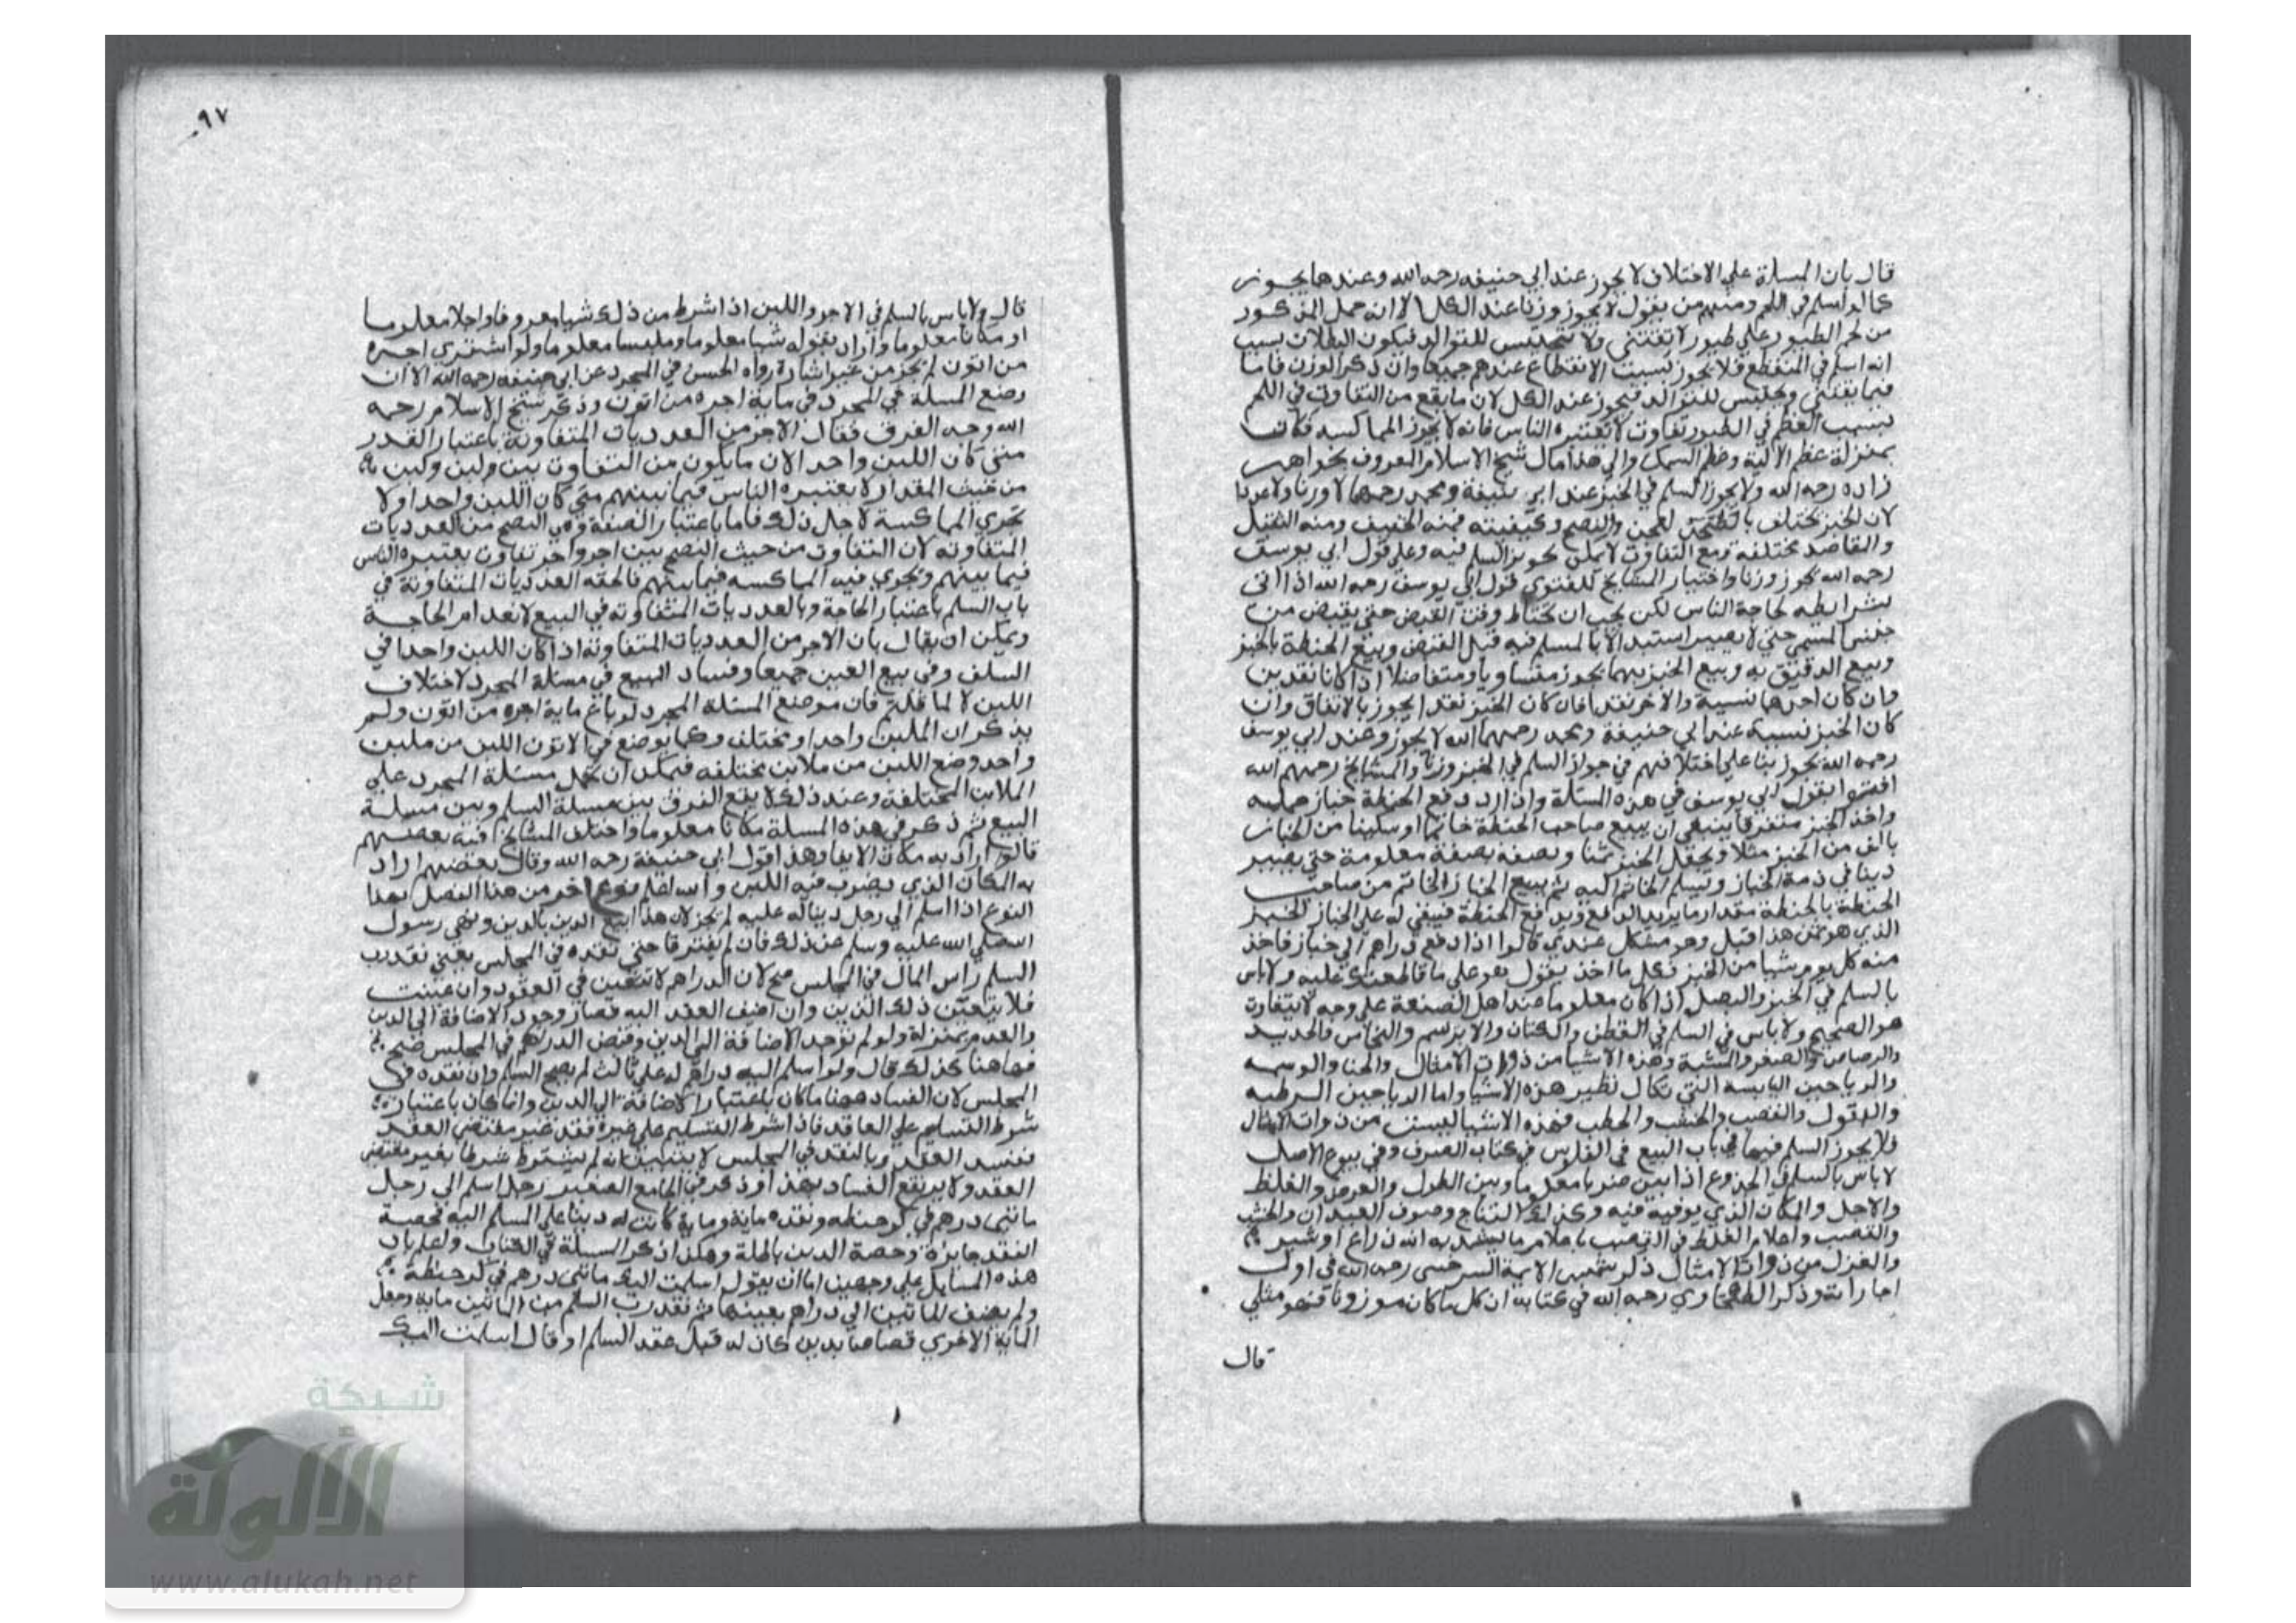 قال بان المسلة علي الاختلاف لا يجوز عند ابي حنيفه رحه الله وعندهما يجوز
كما لو اسلم في اللحم ومنهم من يقول لا يجوز وزنا عند الكل الا انه حمل المذكور
من لحم الطيور علي طيور لا تقتنى ولا تحبس للتوالد فيكون البطلان بسبب
انه اسلم في المنقطع فلا يجوز بسبب الانقطاع عندهم جميعا وان ذكر الوزن فاما
فيما يقتنى ويحبس للتوالد فيجوز عند الكل لان ما يقع من التفاوت في اللحم
بسبب العظم في الطيور تفاوت لا تعتبره الناس فانه لا يجوز المماكسه فكانت
بمنزلة عظم الالية وعظم السمك والي هذا مال شيخ الاسلام المعروف بخواهر
زاده رحه الله ولا يجوز السلم في الخبز عند ابي حنيفة ومحمد رحمهما لا وزنا ولا عددا
لان الخبز يختلف بالعجن والنضج وكيفيته فمنه الخفيف ومنه الثقيل
والمقاصد مختلفة ومع التفاوت لا يمكن تجويز السلم فيه وعلي قول ابي يوسف
رحه الله يجوز وزنا واختيار المشايخ للفتوي قول ابي يوسف رحه الله اذا اتى
بشرايطه لحاجة الناس لكن يجب ان يحتاط وقت القبض حتي يقبض من
جنس المسمي حتي لا يصير استبدالا بالمسلم فيه قبل القبض وبيع الحنطة بالخبز
وبيع الدقيق به وبيع الخبز بهما يجوز متساويا ومتفاضلا اذا كانا نقدين
وان كان احدهما نسيية والاخر نقدا فان كان الخبز نقدا يجوز بالاتفاق وان
كان الخبز نسيية عند ابي حنيفة ومحمد رحمهما الله لا يجوز وعند ابي يوسف
رحمه الله يجوز بنا علي اختلافهم في جواز السلم في الخبز وزنا والمشايخ رحمهم الله
افتوا بقول ابي يوسف في هذه المسئلة وان اراد دفع الحنطة خباز جملة
واخذ الخبز متفرقا ينبغي ان يبيع صاحب الحنطة خاتما او سكينا من الخباز
بالف من الخبز مثلا ويجعل الخبز ثمنا ويصفه بصفة معلومة حتي يصير
دينا في ذمة الخباز ويسلم الخاتم اليه ثم يبيع الخباز الخاتم من صاحب
الحنطة بالحنطة مقدار ما يريد الدافع ويدفع الحنطة فيبقي له علي الخباز الخبز
الذي هو ثمن هذا قيل وهو مشكل عندي قالوا اذا دفع دراهم الي خباز فاخذ
منه كل يوم شيا من الخبز فكل ما اخذ يقول هو علي ما قاطعتك عليه ولا باس
بالسلم في الخبز والبصل اذا كان معلوما عند اهل الصنعة علي وجه لا يتفاوت
هو الصحيح ولا باس في السلم في القطن والكتان والابريسم والنحاس والحديد
والرصاص والصفر والشبة وهذه الاشيا من ذوات الامثال والحنا والوسمه
والرياحين اليابسه التي تكال نظير هذه الاشيا واما الرياحين الرطبه
والبقول والقصب والحشب والحطب فهذه الاشيا ليست من ذوات الامثال
فلا يجوز السلم فيها في باب البيع في الفلوس في كتاب الصرف وفي بيوع الاصل
لا باس بالسلم في الجذوع اذا بين ضربا معلوما وبين الطول والعرض والغلظ
والاجل والمكان الذي يوفيه فيه وكذلك الساج وصنوف العيدان والخشب
والقصب واعلام الغلظ في القصب باعلام ما يشد به الله ذراع او شبر
والغزل من ذوات الامثال ذكر شمس الايمة السرخسى رحه الله في اول
اجاراته وذكر الطحاوي رحه الله في كتابه ان كل ما كان موزونا فهو مثلي
قال
٩٧
قال ولا باس بالسلم في الاجر واللبن اذا اشرط من ذلك شيا معروفا واجلا معلوما
او مكانا معلوما واراد بقوله شيا معلوما وملبنا معلوما ولو اشتري اجره
من اتون لم يجز من غير اشارة رواه الحسن في المجرد عن ابي حنيفه رحمه الله الا ان
وضع المسلة في المجرد في ماية اجره من اتون وذكر شيخ الاسلام رحمه
الله وجه الفرق فقال الاجر من العدديات المتفاوتة باعتبار القدر
متى كان اللبن واحد الان ما يكون من التفاوت بين ولبن ولبن
من حيث المقدار لا يعتبره الناس فيما بينهم متي كان اللبن واحدا ولا
تجري المماكسة لاجل ذلك فاما باعتبار الصفة وهي النضج من العدديات
المتفاوته لان التفاوت من حيث النضج بين اجر واجر تفاوت يعتبره الناس
فيما بينهم وتجري فيه المماكسه فيما بينهم فالحقه العدديات المتفاوتة في
باب السلم باعتبار الحاجة وبالعدديات المتفاوته في البيع لانعدام الحاجة
ويمكن ان يقال بان الاجر من العدديات المتفاوتة اذا كان اللبن واحدا في
السلف وفي بيع العين جميعا وفساد البيع في مسئلة المجرد لاختلاف
اللبن لا لما قلتم فان موضع المسئلة المجرد لو باع ماية اجره من اتون ولم
يذكر ان الملبن واحد او مختلف وكما يوضع في الاتون اللبن من ملبن
واحد وضع اللبن من ملابن مختلفه فيمكن ان تحمل مسئلة المجرد علي
الملابن المختلفة وعند ذلك لا يقع الفرق بين مسلة السلم وبين مسلة
البيع ثم ذكر في هذه المسلة مكانا معلوما واختلف المشايخ فيه بعضهم
قالوا اراد به مكان الايفا وهذا قول ابي حنيفة رحه الله وقال بعضهم اراد
به المكان الذي يضرب فيه اللبن والله اعلم نوع اخر من هذا الفصل بهذا
النوع اذا اسلم الي رجل دينا له عليه لم يجز لان هذا ابيع الدين بالدين ونهي رسول
الله صلي الله عليه وسلم عن ذلك فان لم يفترقا حتي نقده في المجلس يعني نقد رب
السلم راس المال في المجلس صح لان الدراهم لا تتعين في العقود وان عينت
فلا يتعين ذلك الدين وان اضيف العقد اليه فصار وجود الاضافة الي الدين
والعدم بمنزلة ولو لم توجد الاضافة الي الدين وقبض الدراهم في المجلس صح
فهاهنا كذلك قال ولو اسلم اليه دراهم له علي ثالث لم يصح السلم وان نقده في
المجلس لان الفساد ههنا ما كان باعتبار الاضافة الي الدين وانما كان باعتبار
شرط التسليم علي العاقد فاذا اشرط التسليم علي غيره فقد غير مقتضي العقد
ففسد العقد وبالنقد في المجلس لا يتبين انه لم يشترط شرطا بغير مقتضى
العقد ولا يرتفع الفساد بهذا وذكر في الجامع الصغير رجل اسلم الي رجل
ماتيى درهم في كر حنطه ونقده ماية وماية كانت له دينا علي المسلم اليه فحصة
النقد جايزة وحصة الدين باطلة وهكذا ذكر المسلة في الكتاب واعلم بان
هذه المسايل علي وجهين اما ان يقول اسلمت اليك ماتي درهم في كر حنطة
ولم يضف الماتين الي دراهم بعينها ثم نقد رب السلم من الماتين ماية وجعل
الماية الاخري قصاصا بدين كان له قبل عقد السلم او قال اسلمت اليك
شبكة
الألوكة
www.alukah.net